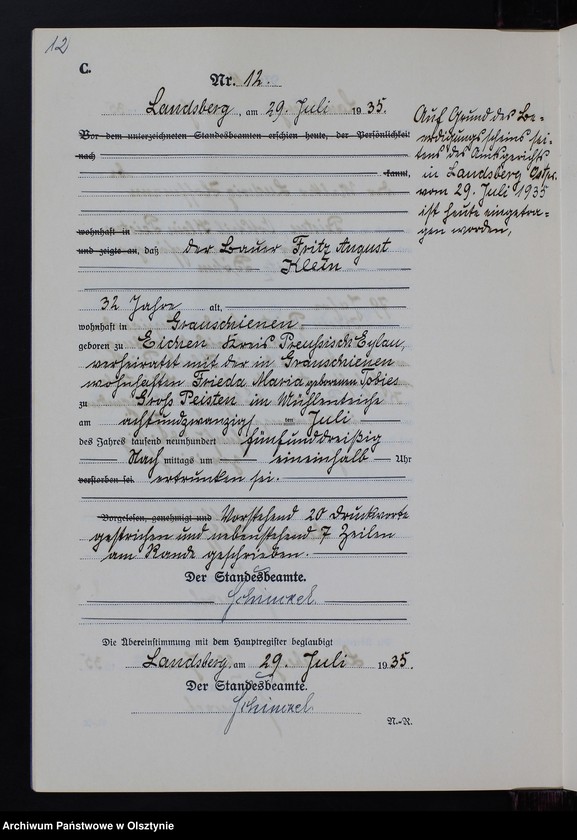 12
C.
Nr. 12.
Landsberg, am 29. Juli 1935.
Vor dem unterzeichneten Standesbeamten erschien heute, der Persönlichkeit
nach
kannt,
wohnhaft in
und zeigte an, daß der Bauer Fritz August
Klein
32 Jahre alt,
wohnhaft in Grauschienen
geboren zu Eichen Kreis Preußisch Eylau,
verheiratet mit der in Grauschienen
wohnhaften Frieda Maria geborenen Tobies
zu Groß Peisten im Mühlenteiche
am achtundzwanzigsten Juli
des Jahres tausend neunhundert fünfunddreißig
Nachmittags um eineinhalb Uhr
verstorben sei. ertrunken sei.
Vorgelesen, genehmigt und Vorstehend 20 Druckworte
gestrichen und nebenstehend 7 Zeilen
am Rande geschrieben.
Der Standesbeamte.
Schinckel
Die Übereinstimmung mit dem Hauptregister beglaubigt
Landsberg, am 29. Juli 1935.
Der Standesbeamte.
Schinckel
N.-R.
Auf Grund des Be-
erdigungsscheins sei-
tens des Amtsgerichts
in Landsberg Ostpr.
vom 29. Juli 1935
ist heute eingetra-
gen worden,
Archiwum Państwowe w Olsztynie